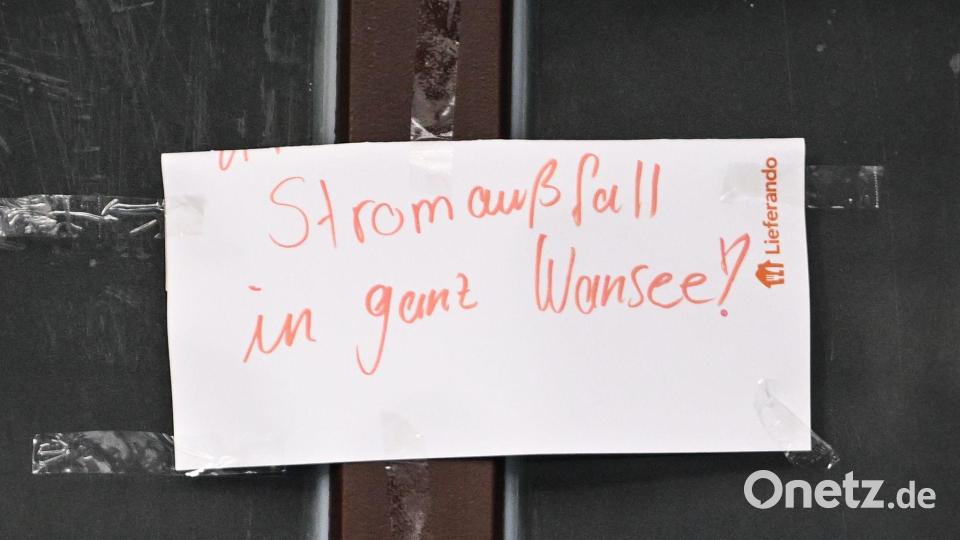 Stromaußfall
in ganz Wansee!
Lieferando
Onetz.de